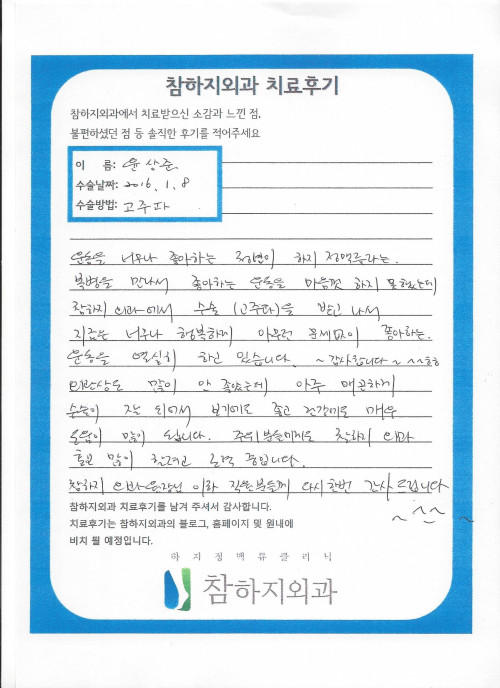 참하지외과 치료후기
참하지외과에서 치료받으신 소감과 느낀 점,
불편하셨던 점 등 솔직한 후기를 적어주세요
이 름: 윤상준
수술날짜: 2016. 1. 8
수술방법: 고주파
운동을 너무나 좋아하는 저한테 하지정맥류라는
복병을 만나서 좋아하는 운동을 마음껏 하지 못했는데
참하지 외과에서 수술 (고주파)을 받고 나서
지금은 너무나 행복하게 아무런 문제없이 좋아하는
운동을 열심히 하고 있습니다. ~감사합니다~^^
외관상도 많이 안 좋았는데 아주 매끈하게
수술이 잘 되어서 보기에도 좋고 건강에도 매우
도움이 많이 됩니다. 주위분들에게도 참하지 외과
홍보 많이 하려고 노력 중입니다.
참하지 외과 원장님 이하 직원분들께 다시한번 감사드립니다
~^^~
참하지외과 치료후기를 남겨 주셔서 감사합니다.
치료후기는 참하지외과의 블로그, 홈페이지 및 원내에
비치 될 예정입니다.
하지정맥류클리닉
참하지외과